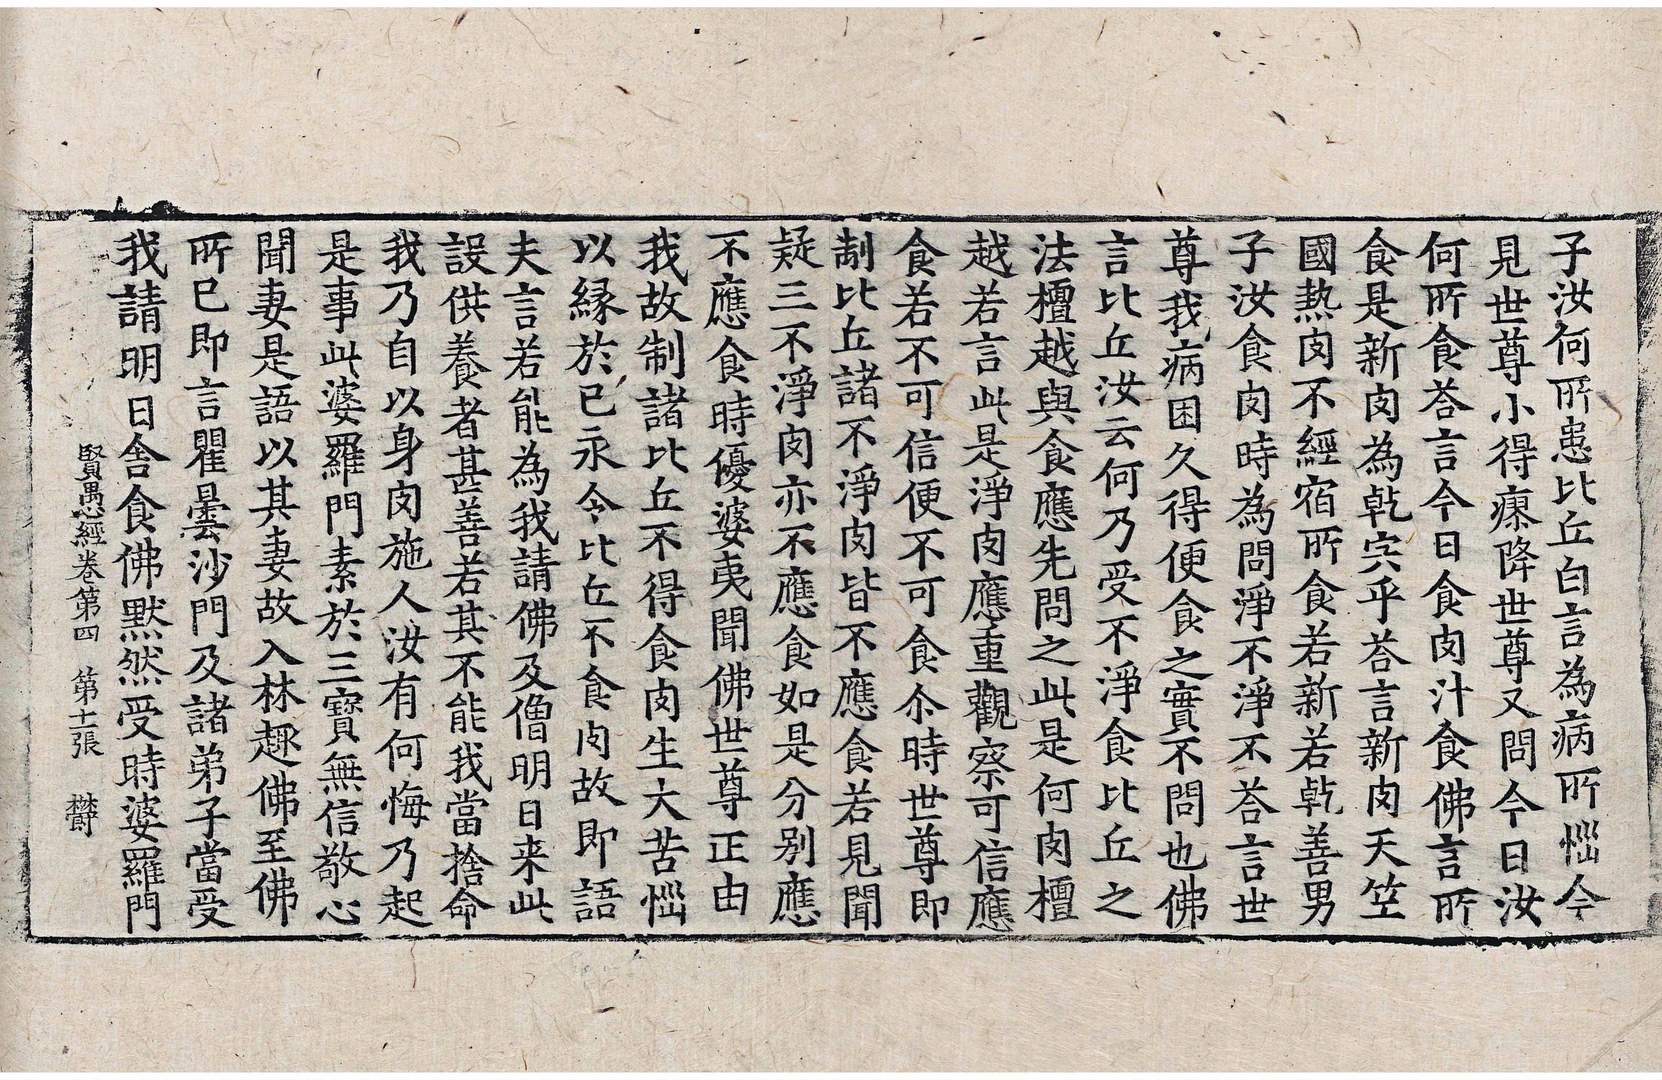 子汝何所患比丘白言為病所惱今
見世尊小得瘳降世尊又問今日汝
何所食荅言今日食肉汁食佛言所
食是新肉為乾肉乎荅言新肉天竺
國熱肉不經宿所食若新若乾善男
子汝食肉時為問淨不淨不荅言世
尊我病困久得便食之實不問也佛
言比丘汝云何乃受不淨食比丘之
法檀越與食應先問之此是何肉檀
越若言此是淨肉應重觀察可信應
食若不可信便不可食尒時世尊即
制比丘諸不淨肉皆不應食若見聞
疑三不淨肉亦不應食如是分別應
不應食時優婆夷聞佛世尊正由
我故制諸比丘不得食肉生大苦惱
以緣於己永令比丘不食肉故即語
夫言若能為我請佛及僧明日来此
設供養者甚善若其不能我當捨命
我乃自以身肉施人汝有何悔乃起
是事此婆羅門素於三寶無信敬心
聞妻是語以其妻故入林趣佛至佛
所已即言瞿曇沙門及諸弟子當受
我請明日舍食佛默然受時婆羅門
賢愚經卷第四　第十一張　欝